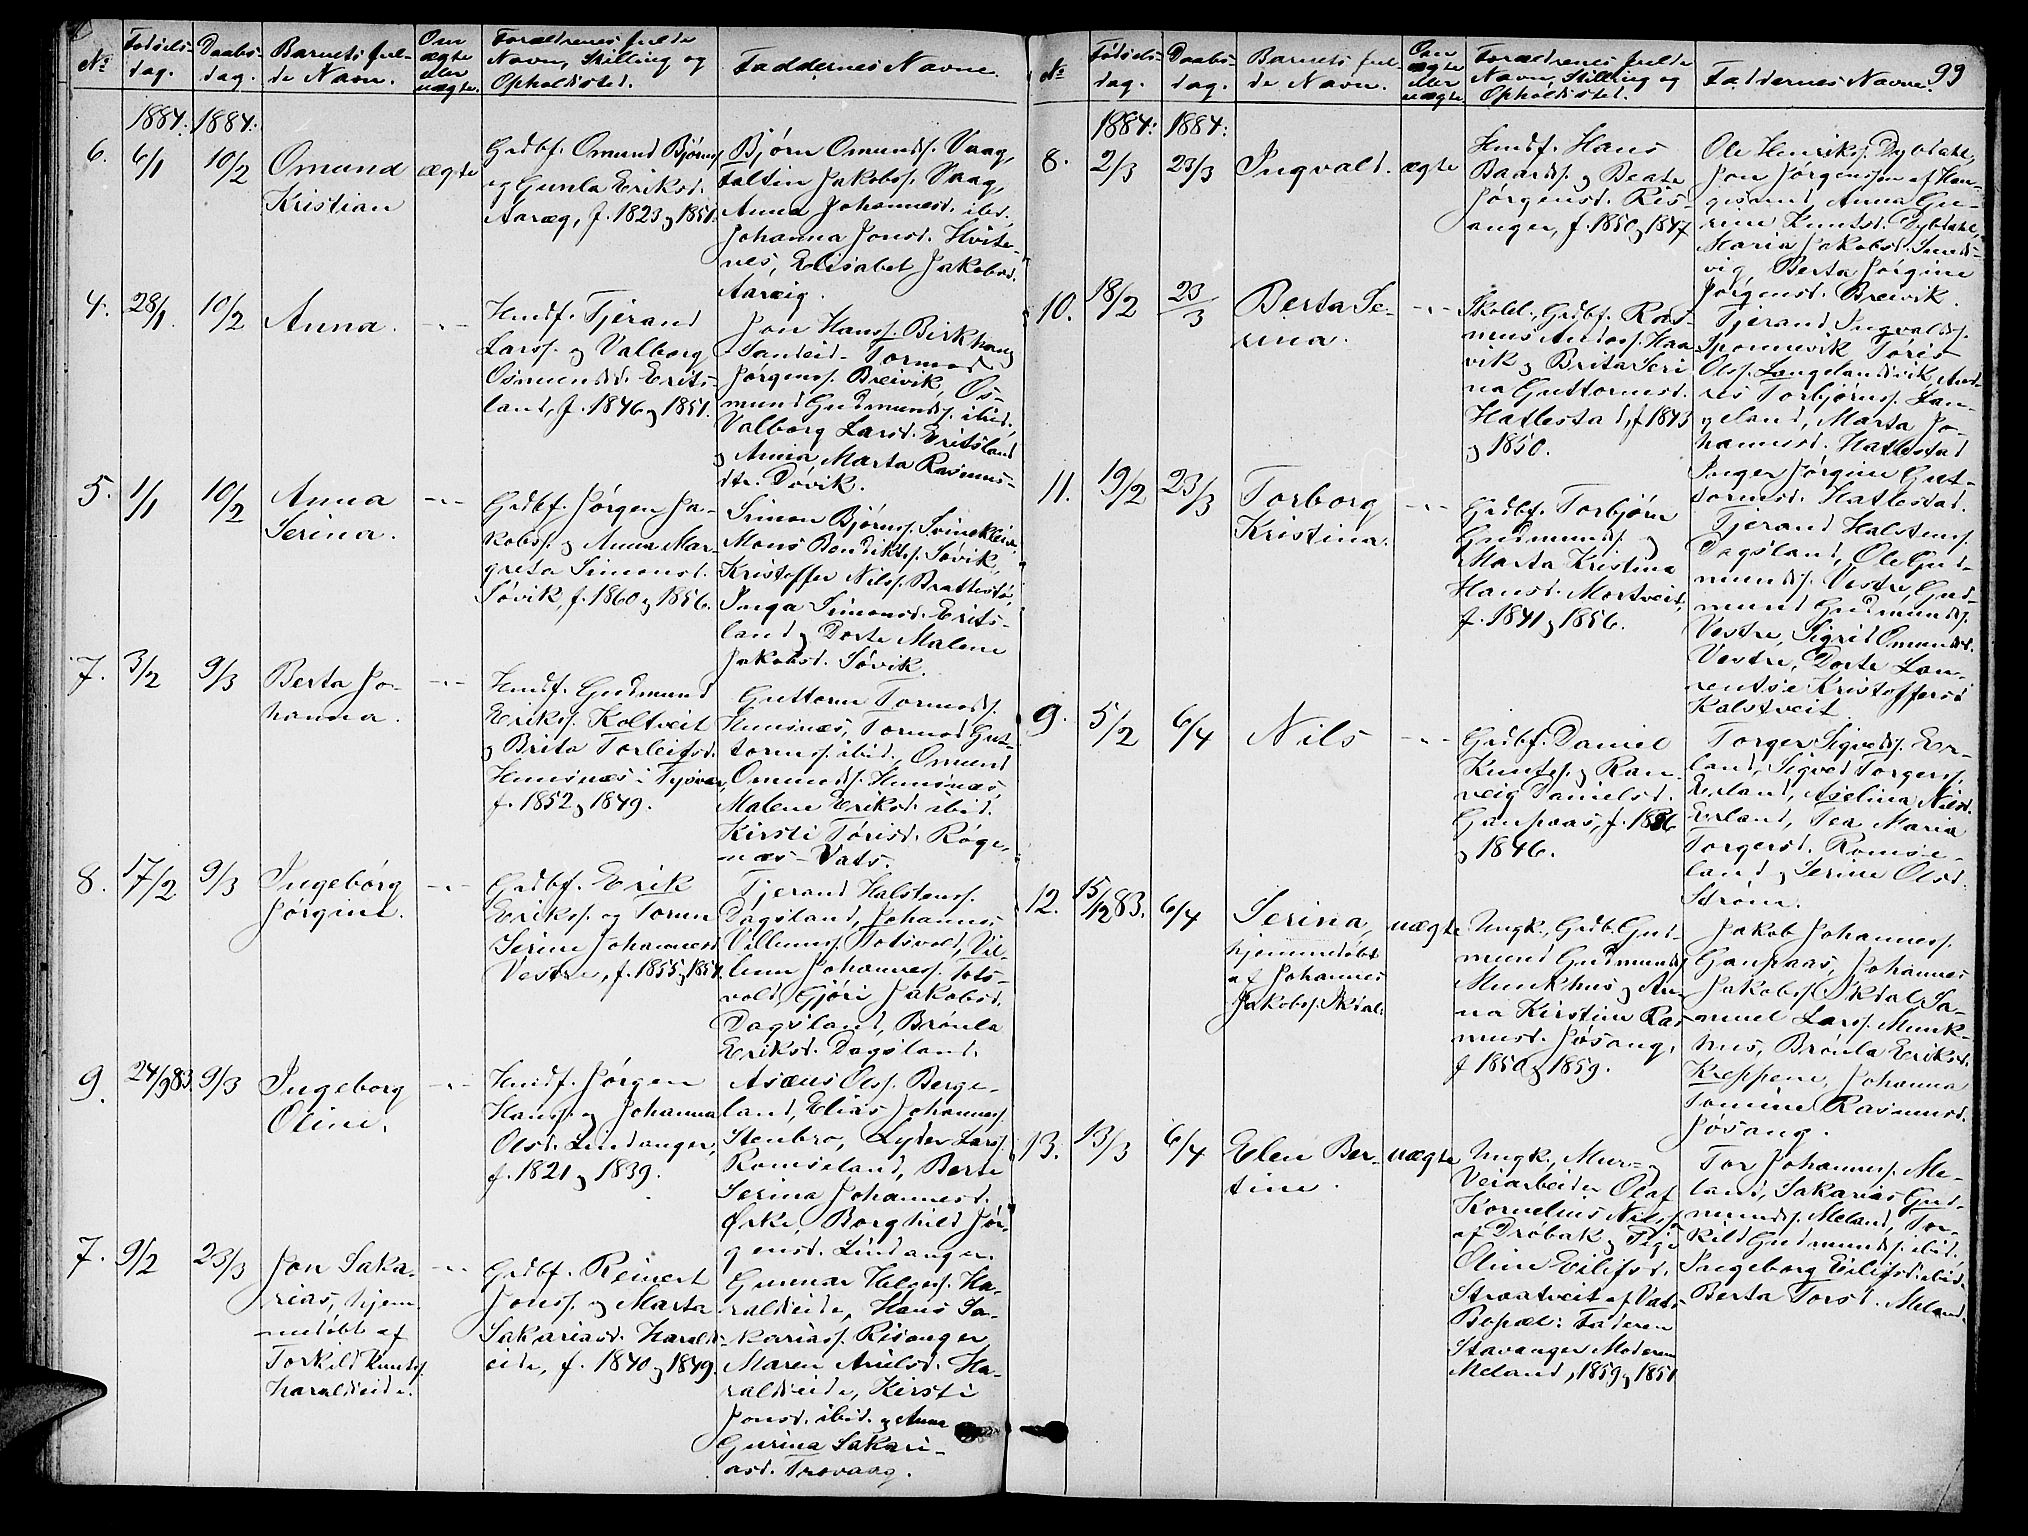 №
Fødsels-
dag.
Daabs-
dag.
Barnets ful-
de Navn.
Om
ægte
eller
uægte.
Forældrenes fulde
Navn, Stilling og
Opholdssted.
Faddernes Navne.
1884: 1884:
6.
6/1
10/2
Omund
Kristian
ægte
Grdbf. Omund Bjørns.
og Gunla Eriksd.
Aaræg, f. 1823 & 1851.
Bjørn Omunds. Vaag,
Jakobs. Vaag,
Anna Johannesd. ibid,
Johanna Jonsd. Hvite-
nes, Elisabet Jakobsd.
Aaræig.
4.
28/1.
10/2
Anna.
-"-
Husmf. Tjerand
Larss. og Valborg
Osmundsd. Erits-
land, f. 1846 & 1851.
Jon Hanss. Birkhaug
Sandeid - Tormod
Jørgens. Breivik, Os-
mund Gudmunds. ibid,
Valborg Larsd. Eritsland
& Anna Marta Rasmus-
dtr. Døvik.
5.
1/1
10/2
Anna
Serina.
-"-
Grdbf. Jørgen Ja-
kobs. og Anna Mar-
greta Simonsd.
Søvik, f. 1860 & 1856.
Simon Bjørns. Svinekleiv,
Mons Bendikts. Søvik,
Kristoffer Nils. Brattestø,
Inga Simonsd. Erits-
land & Dorte Malene
Jakobsd. Søvik.
7.
3/2
9/3
Berta Jo-
hanna.
-"-
Husmf. Gudmund
Eriks. Koltveit
& Brita Torleifsd.
Hemsnæs i Tysvær,
f. 1852 & 1849.
Guttorm Tormods.
Hemsnæs, Tormod Gut-
torms. ibid, Omund
Omunds. Hemsnæs,
Malene Eriksd. ibid.
Kirsti Torisd. Røge-
næs - Vats.
8.
17/2.
9/3
Ingeborg
Jørgine.
-"-
Grdbf. Erik
Eriks. og Torun
Serine Johannesd.
Vestre, f. 1855 & 1854.
Tjerand Halstens.
Dagsland, Johannes
Villums. Totsvold, Vil-
lum Johannes. Tots-
vold, Gjøri Jakobsd.
Dagsland, Brønla
Eriksd. Dagsland.
9.
24/9 83.
9/3
Ingeborg
Oline.
-"-
Husmf. Jørgen
Hans. og Johanna
Olsd. Lindanger,
f. 1821 & 1839.
Asæus Ols. Berge-
land, Elias Johannes.
Stenbro, Lyder Lars.
Romseland, Berte
Serina Johannesd.
Ørke, Borghild Jør-
gensd. Lindanger.
7.
9/2
23/3
Jon Saka-
rias, hjem-
medøbt af
Torkild Knuds.
Haraldseide.
-"-
Grdbf. Reinert
Jons. og Marta
Sakariasd. Harald-
eide, f. 1840 & 1849.
Gunnar Helges. Ha-
raldseide, Hans Sa-
karias. Risanger
Maren Arielsd. Ha-
raldseide, Kirsti
Jonsd. ibid. & Anna
Gurina Sakari-
asd. Trovaag.
№
Fødsels-
dag.
Daabs-
dag.
Barnets ful-
de Navn.
Om
ægte
eller
uægte
Forældrenes fulde
Navn, Stilling og
Opholdssted.
Faddernes Navne.
99
1884: 1884:
8.
2/3
23/3
Ingvald.
ægte
Husmf. Hans
Baards. og Beate
Jørgensd. Ris-
anger, f. 1850 & 1847
Ole Henriks. Dybdahl,
Jon Jørgenssøn af Hau-
gesund, Anna Gu-
rine Knudsd. Dybdahl,
Maria Jakobsd. Smeds-
vig, Berta Jørgine
Jørgensd. Breivik.
10.
18/2
23/3
Berta Se-
rina.
-"-
Skolel., Grdbf. Ras-
mus Ands. Haa-
vik & Brita Seri
na Guttormsd.
Hatlestad, f. 1843
& 1850.
Tjerand Ingvalds.
Sponnevik, Tøris
Ols. Langelandsvik, And-
res Torbjørns. Lan-
geland, Marta Jo-
hannesd. Hatlestad
Inger Jørgine Gut-
tormsd. Hatlestad.
11.
19/2
23/3
Torborg
Kristina.
-"-
Grdbf. Torbjørn
Gudmunds. &
Marta Kristina
Hansd. Mortveit,
f. 1841 & 1856.
Tjerand Halstens.
Dagsland, Ole Gud-
munds. Vestre, Gud-
mund Gudmunds.
Vestre, Sigrid Omundsd.
Vestre, Dorte Lau-
rentse Kristoffersd.
Kalstveit
9.
5/2
6/4
Nils
-"-
Grdbf. Daniel
Knuts. & Ran-
veig Danielsd.
Gaupaas, f. 1836
& 1846.
Torger Sigveds. Er-
land, Sigved Torgers.
Erland, Aselina Nilsd.
Erland, Tea Maria
Torgersd. Romse-
land & Serine Olsd.
Strøm.
12.
15/12 83.
6/4
Serina,
hjemmedøbt
af Johannes
Jakobs. Økdal.
uægte
Ungk., Grdb. Gud-
mund Gudmunds.
Munkhus & An-
na Kirstine Ras-
musd. Jøsang,
f 1850 & 1859.
Jakob Johannes.
Gaupaas, Johannes
Jakobs. Økdal, Sa-
muel Lars. Munk-
hus, Brønla Eriksd.
Kreppene, Johanna
Tomine Rasmusd.
Jøsang.
13.
13/3
6/4
Elen Ber-
tine.
uægte
Ungk., Mur- &
Veiarbeider Olaf
Kornelius Nilss.
af Drøbak & Pige
Oline Eilifsd.
Straatveit af Vats
Bopæl: Faderen
Stavanger Moderen
Meland, 1859 & 1851
Tor Johannes. Me-
land, Sakarias Gud-
munds. Meland, Tor-
kild Gudmunds. ibid,
Ingeborg Eilifsd. ibid.
Berta Torsd. Meland.